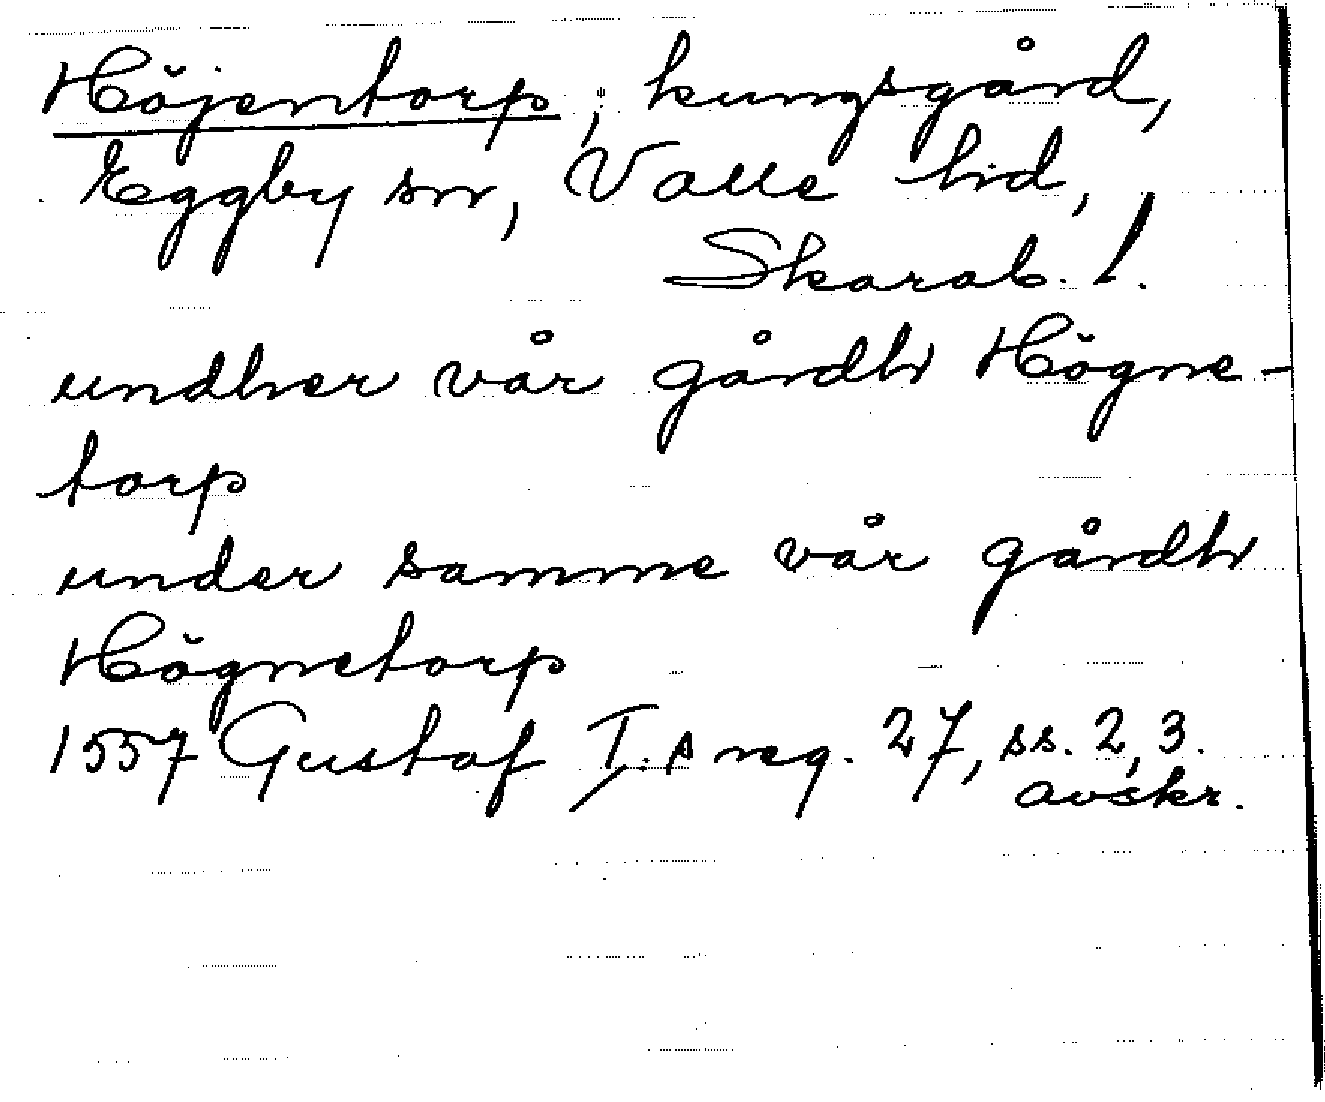 Höjentorp, kungsgård,
Eggby sn, Valle hd,
Skarab. l.
undher vår gårdh Högne-
torp
under samme vår gårdh
Högnetorp
1557 Gustaf I.s reg. 27, ss. 2, 3.
avskr.